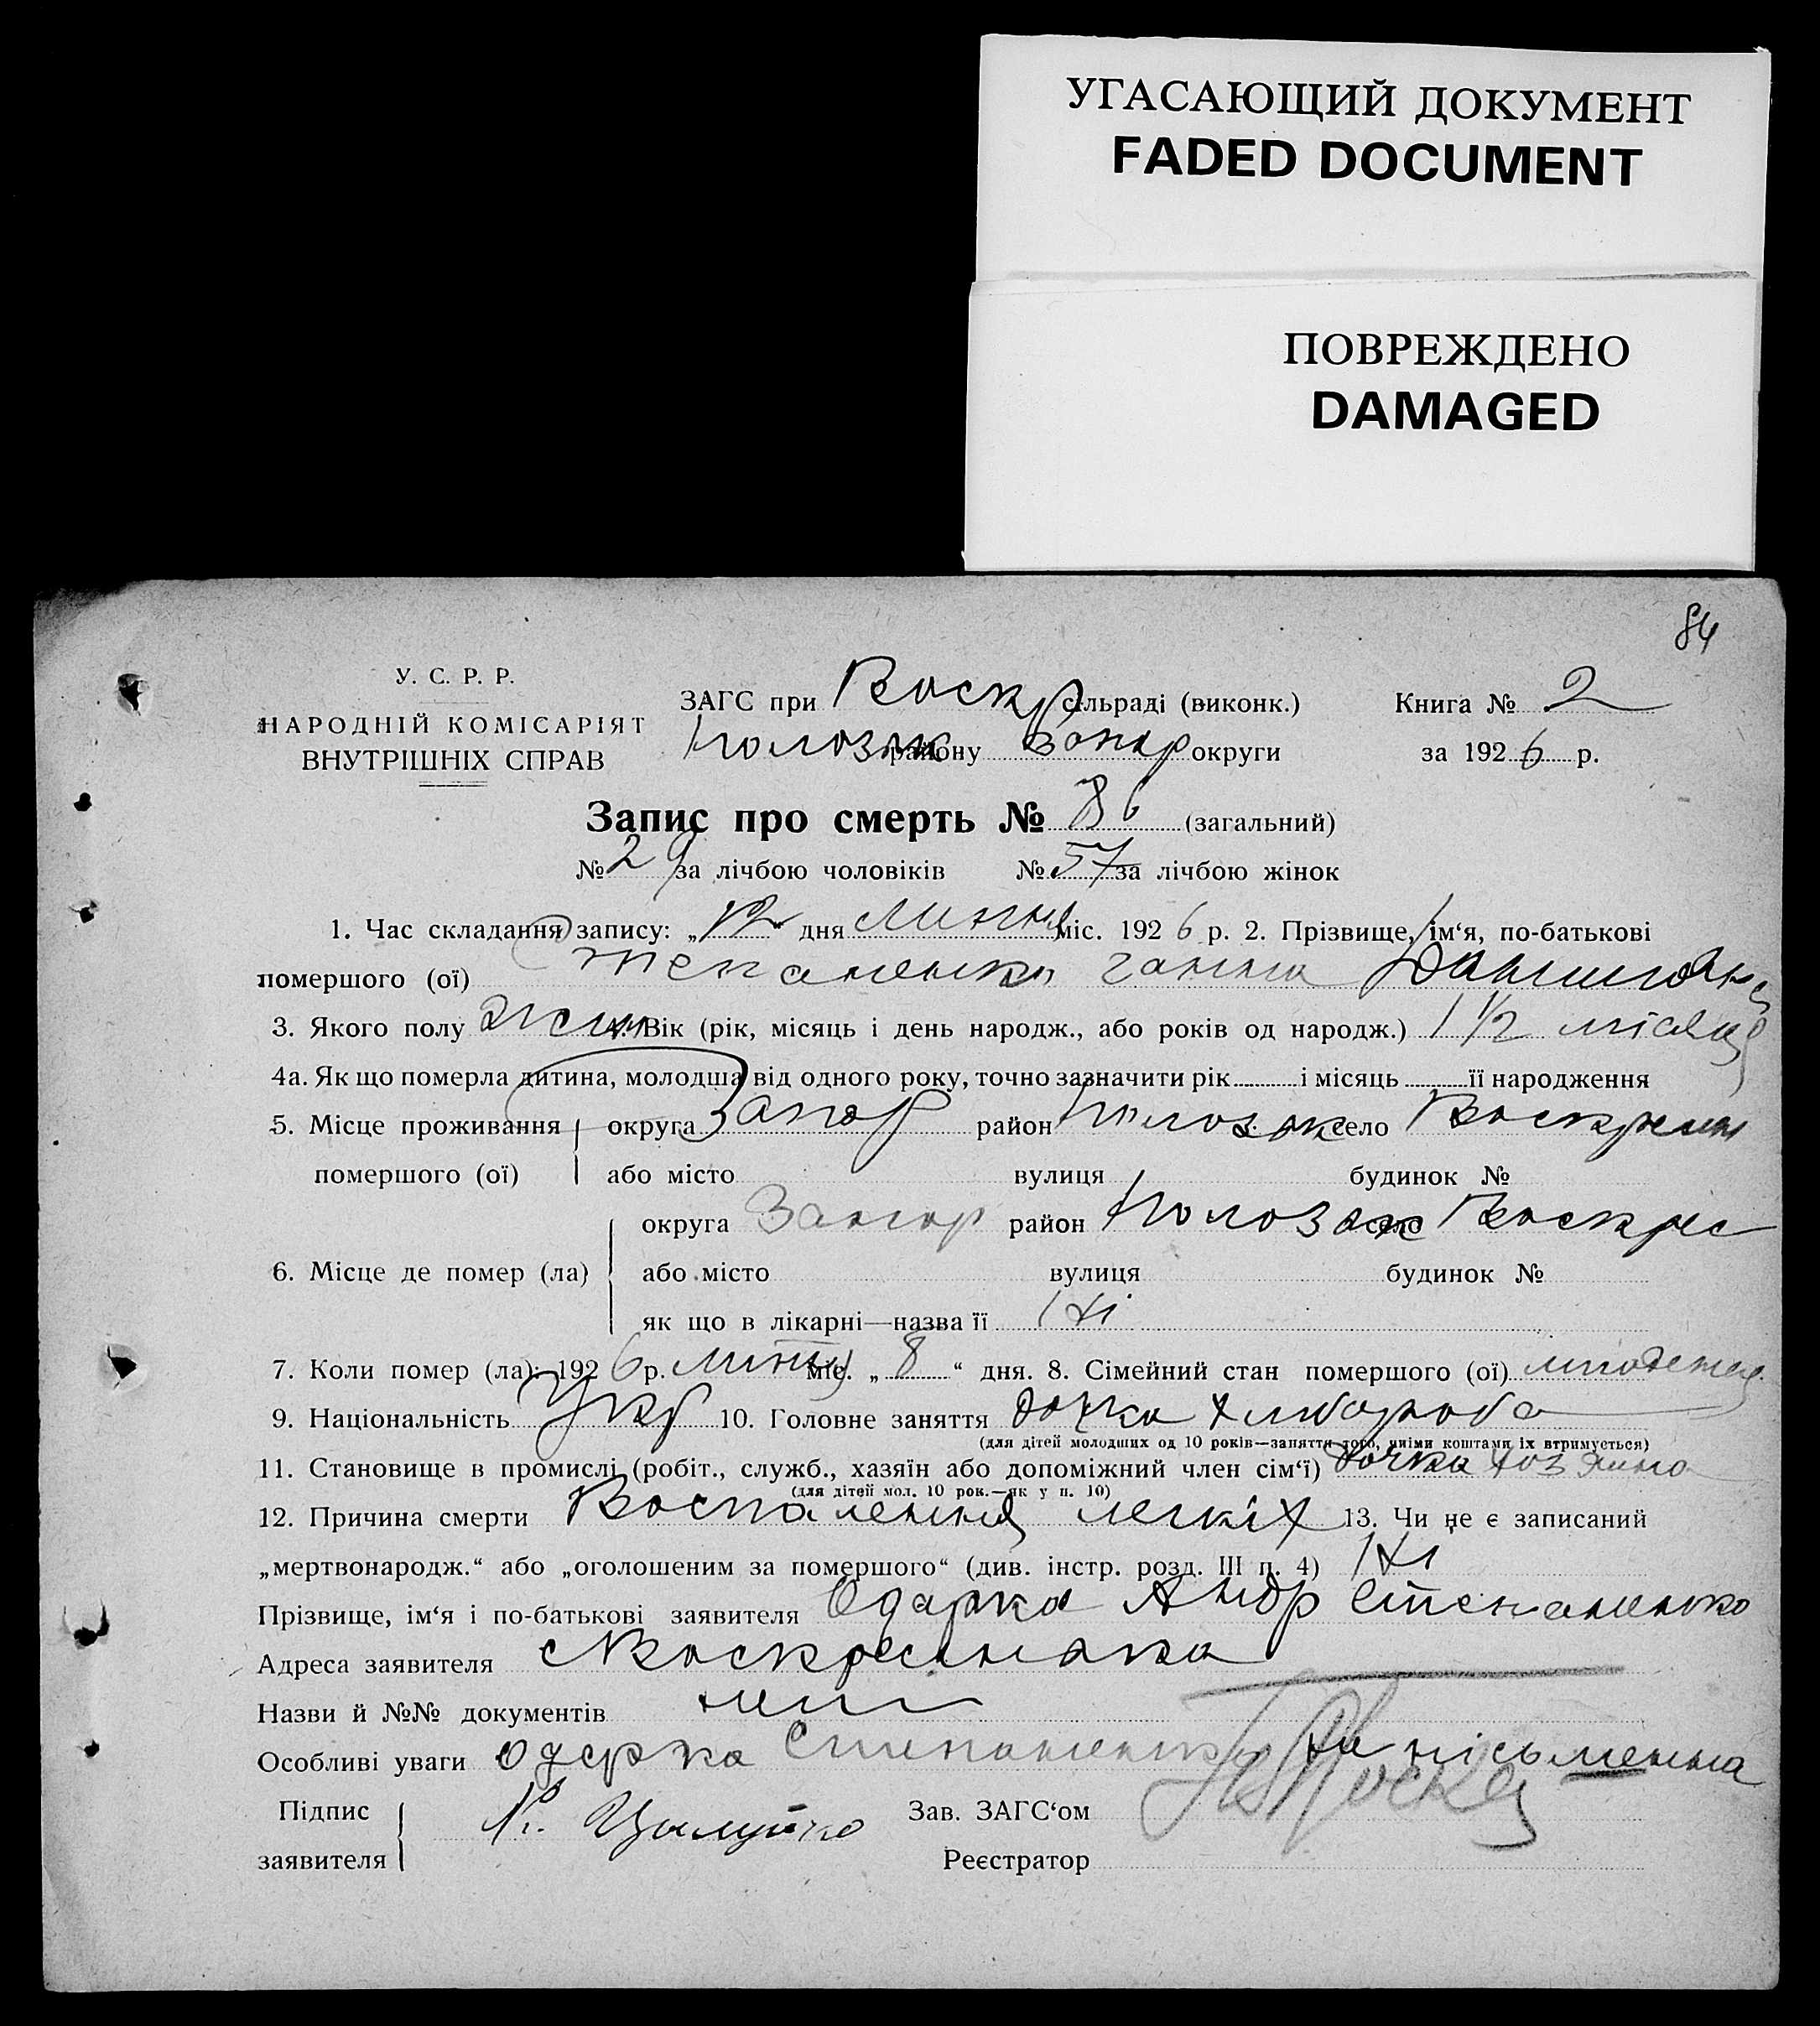 УГАСАЮЩИЙ ДОКУМЕНТ
FADED DOCUMENT
ПОВРЕЖДЕНО
DAMAGED
84
У. С. Р. Р.
НАРОДНІЙ КОМІСАРІЯТ
ВНУТРІШНІХ СПРАВ
ЗАГС при Воскр сільраді (виконк.)
району Запор округи
Книга № 2
за 1926 р.
Запис про смерть № 86 (загальний)
№ 29 за лічбою чоловіків № 57 за лічбою жінок
1. Час складання запису: „12" дня Липня міс. 1926 р. 2. Прізвище, ім‘я, по-батькові
помершого (ої) Степаненко Ганна
3. Якого полу жін 4. Вік (рік, місяць і день народж., або років од народж.) 1 1/2 місяця
4а. Як що померла дитина, молодша від одного року, точно зазначити рік і місяць її народження
5. Місце проживання помершого (ої) округа Запор район Пологівск село Воскресен
або місто вулиця будинок №
6. Місце де помер (ла) округа Запор район Пологівск село Воскрес
або місто вулиця будинок №
як що в лікарні—назва її Ні
7. Коли помер (ла): 1926 р. Липня міс. „8“ дня. 8. Сімейний стан помершого (ої)
9. Національність Укр 10. Головне заняття дочка хлібороба
(для дітей молодших од 10 років—заняття того, чиїми коштами їх втримується)
11. Становище в промислі (робіт., служб., хазяїн або допоміжний член сім‘ї) дочка хозяина
(для дітей мол. 10 рок.—як у п. 10)
12. Причина смерти Воспаления легкіх 13. Чи не є записаний
„мертвонародж.“ або „оголошеним за помершого“ (див. інстр. розд. III п. 4) Ні
Прізвище, ім‘я і по-батькові заявителя Одарка Андр Степаненко
Адреса заявителя с Воскресинка
Назви й №№ документів
Особливі уваги Одарка Степаненко не письменна
Підпис заявителя
Зав. ЗАГС‘ом
Реєстратор